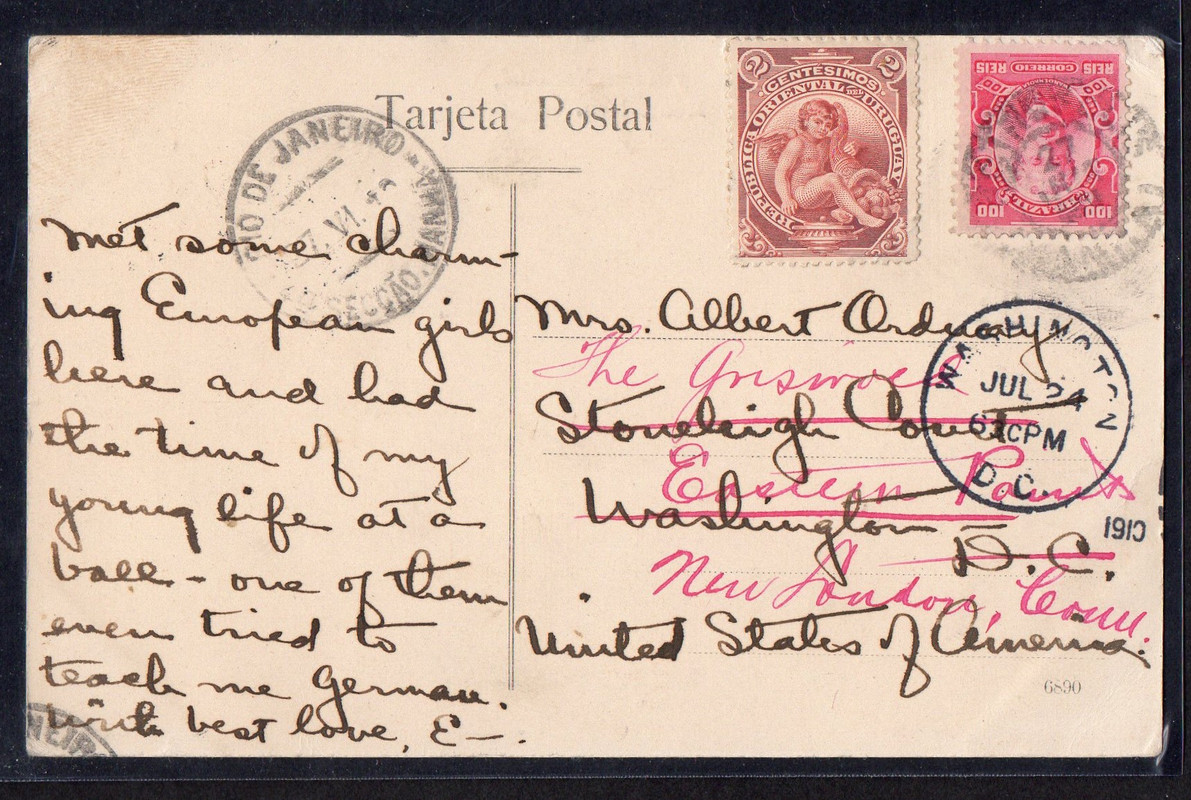 Tarjeta Postal
2 CENTÉSIMOS 2
REPÚBLICA ORIENTAL DEL URUGUAY
REIS CORREIO REIS
100 100
BRAZIL
100 100
RIO DE JANEIRO
SECÇÃO
met some charm-
ing European girls
here and had
the time of my
young life at a
ball - one of them
even tried to
teach me German.
With best love, E—.
Mrs. Albert Ordway
Stoneleigh Court
Washington
D. C.
United States of America.
The Griswold
Eastern Point
New London, Conn.
WASHINGTON
JUL 24
PM
D.C.
1910
6890
NEIRO